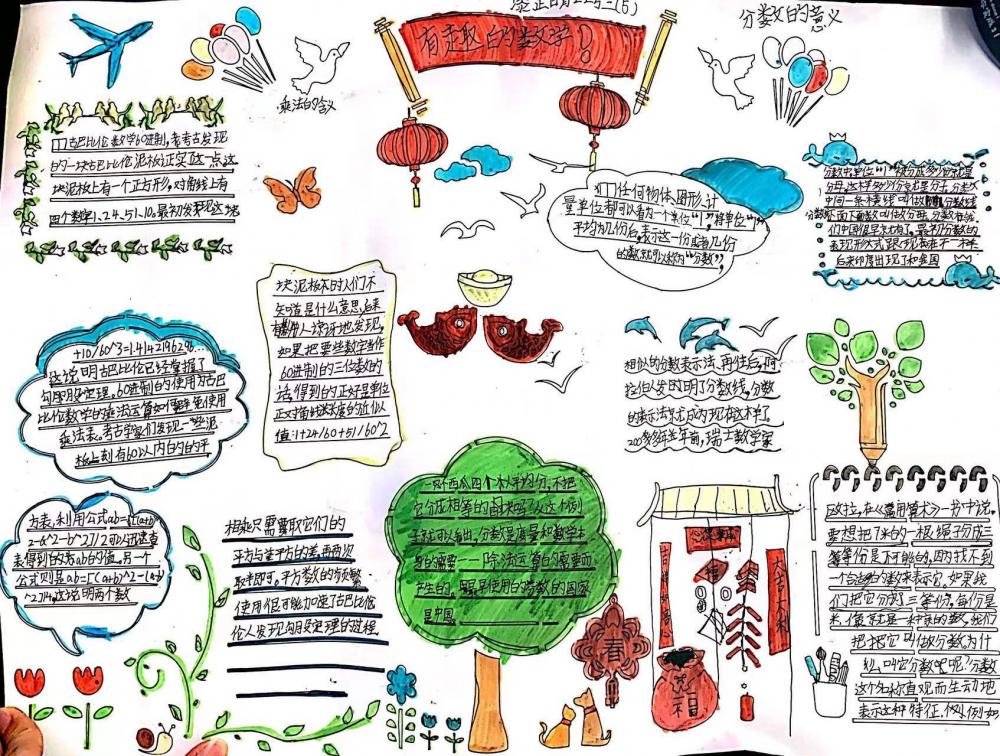 有趣的数学!
分数的意义
乘法的含义
古巴比伦数学60进制,考考古发现
的一块古巴比伦泥板证实了这一点,这
块泥板上有一个正方形,对角线上有
四个数字1、24、51、10。最初发现这
块泥板时的人们不
知道是什么意思,后来
人惊讶地发现,
如果把这些数字当作
60进制的三位数的
话,得到的正好是单位
正对角线长度的近似
值:1+24/60+51/60^2
+10/60^3=1.4142196296...
这说明古巴比伦已经掌握了
勾股定理。60进制的使用为古巴
比伦数学的乘法运算
乘法表。考古学家们发现一些泥
板上刻有60以内的的平
方表,利用公式ab=[(a+b)^
2-a^2-b^2]/2可以迅速查
表得到的ab的值。另一个
公式则是ab=[(a+b)^2-(a-b)
^2]/4,这说明两个数
相乘只需要取它们的
平方与差平方的差,再两次
取半即可。平方数的频繁
使用很可能加速了古巴比伦
伦人发现勾股定理的过程。
任何物体、图形、计
量单位都可以看为一个单位“1”,将单位“1”
平均为几份后,表示这一份或者几份
的数就可以称为“分数”,
分数中单位“1”被分成多少份就是
分母,这样多少分就是分子,分数
中间一条横线叫做分数线
分数线下面的数叫做分母,分数在
们中国很早就有了,最初分数的
表现形式跟现在不一样。
后来印度出现了和我国
相似的分数表示法,再往后,阿
拉伯人发明了分数线,分数
的表示法就成为现在这样了。
200多年前,瑞士数学家
欧拉,在《通用算术》一书中说,
要想把7米的一根绳子分成
等份是不可能的,因为找不到
一个合适的数来表示它,如果我
们把它分成三等份,每份是
米,像就是一种新的数,我们
把把它叫做分数。为什
么叫它分数呢?分数
这个名称直观而生动地
表示这种特征,例如
一只西瓜四个人平均分,不把
它分成相等的四块行吗?从这个例
子就可以看出,分数是度量和数学本
身的需要——除法运算的需要而
产生的。最早使用的分数的国家
是中国。
春
大吉大利